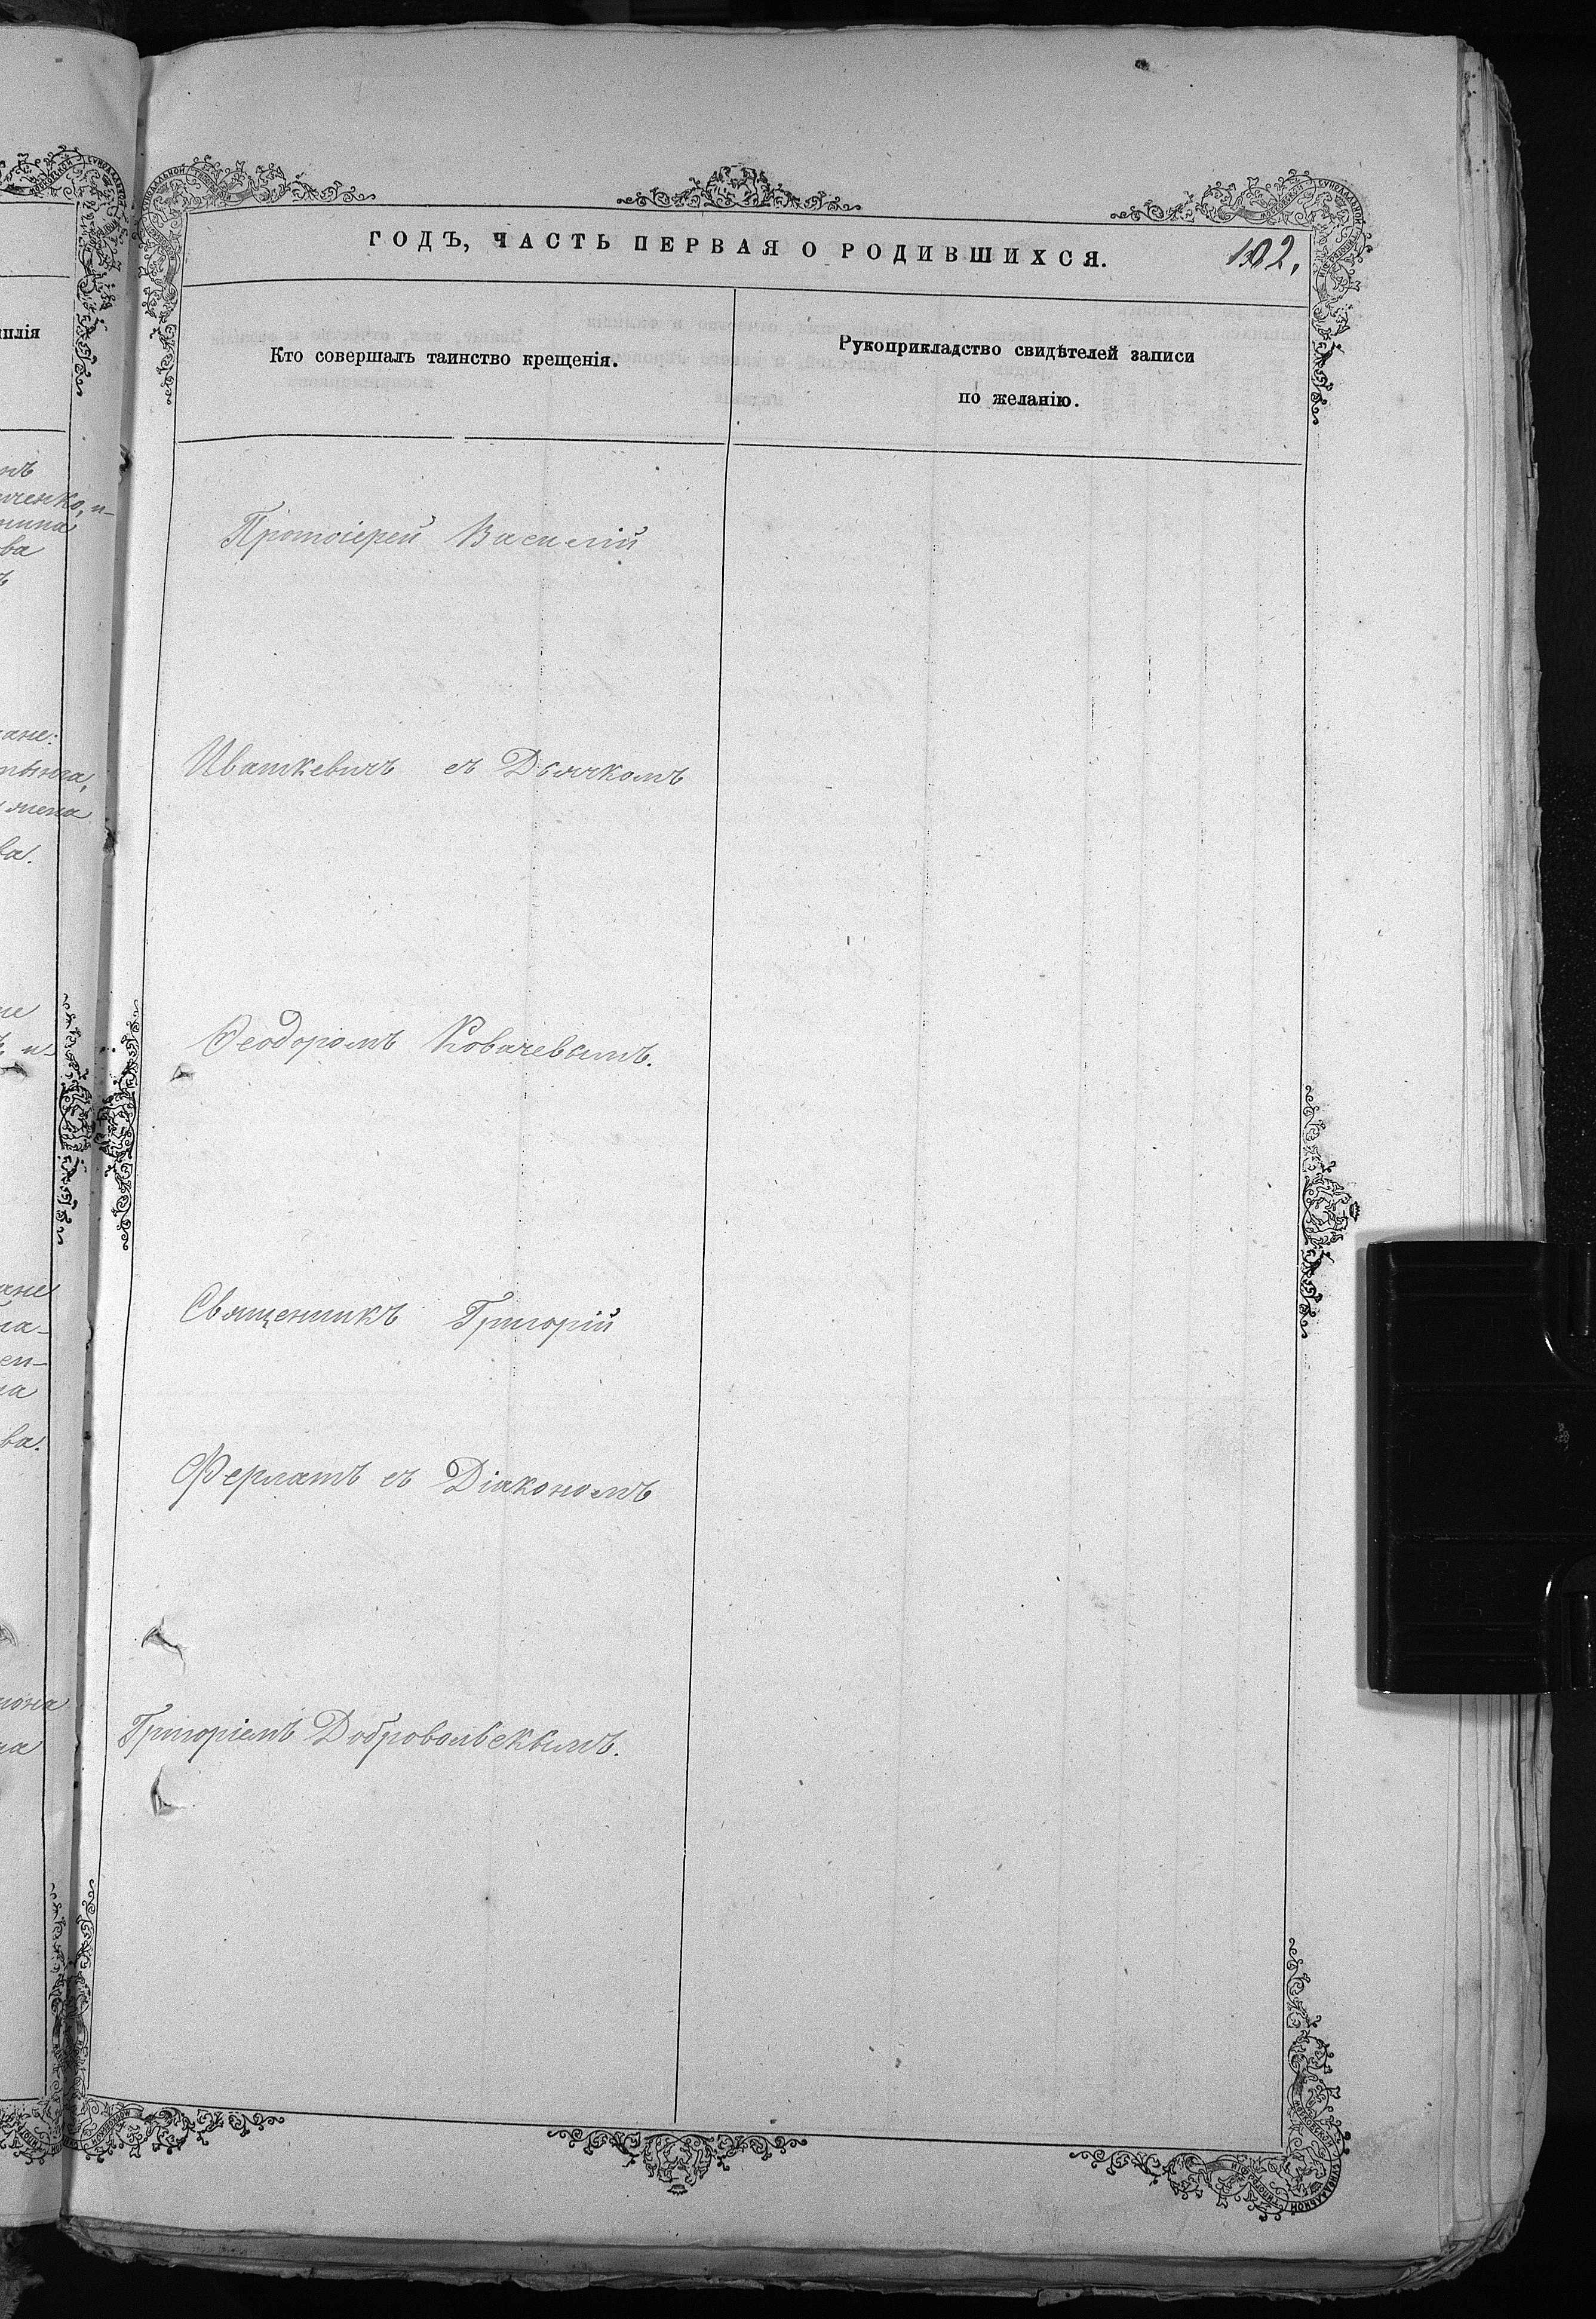 ГОДЪ, ЧАСТЬ ПЕРВАЯ О РОДИВШИХСЯ.
Кто совершалъ таинство крещенія.
Рукоприкладство свидѣтелей записи
по желанію.
Протоіерей Василій
Иваткевичъ съ Дьячкомъ
Ѳеодоромъ Ковачевымъ.
Священникъ Григорій
Ферлатъ съ Діакономъ
Григоріемъ Добровольскимъ.